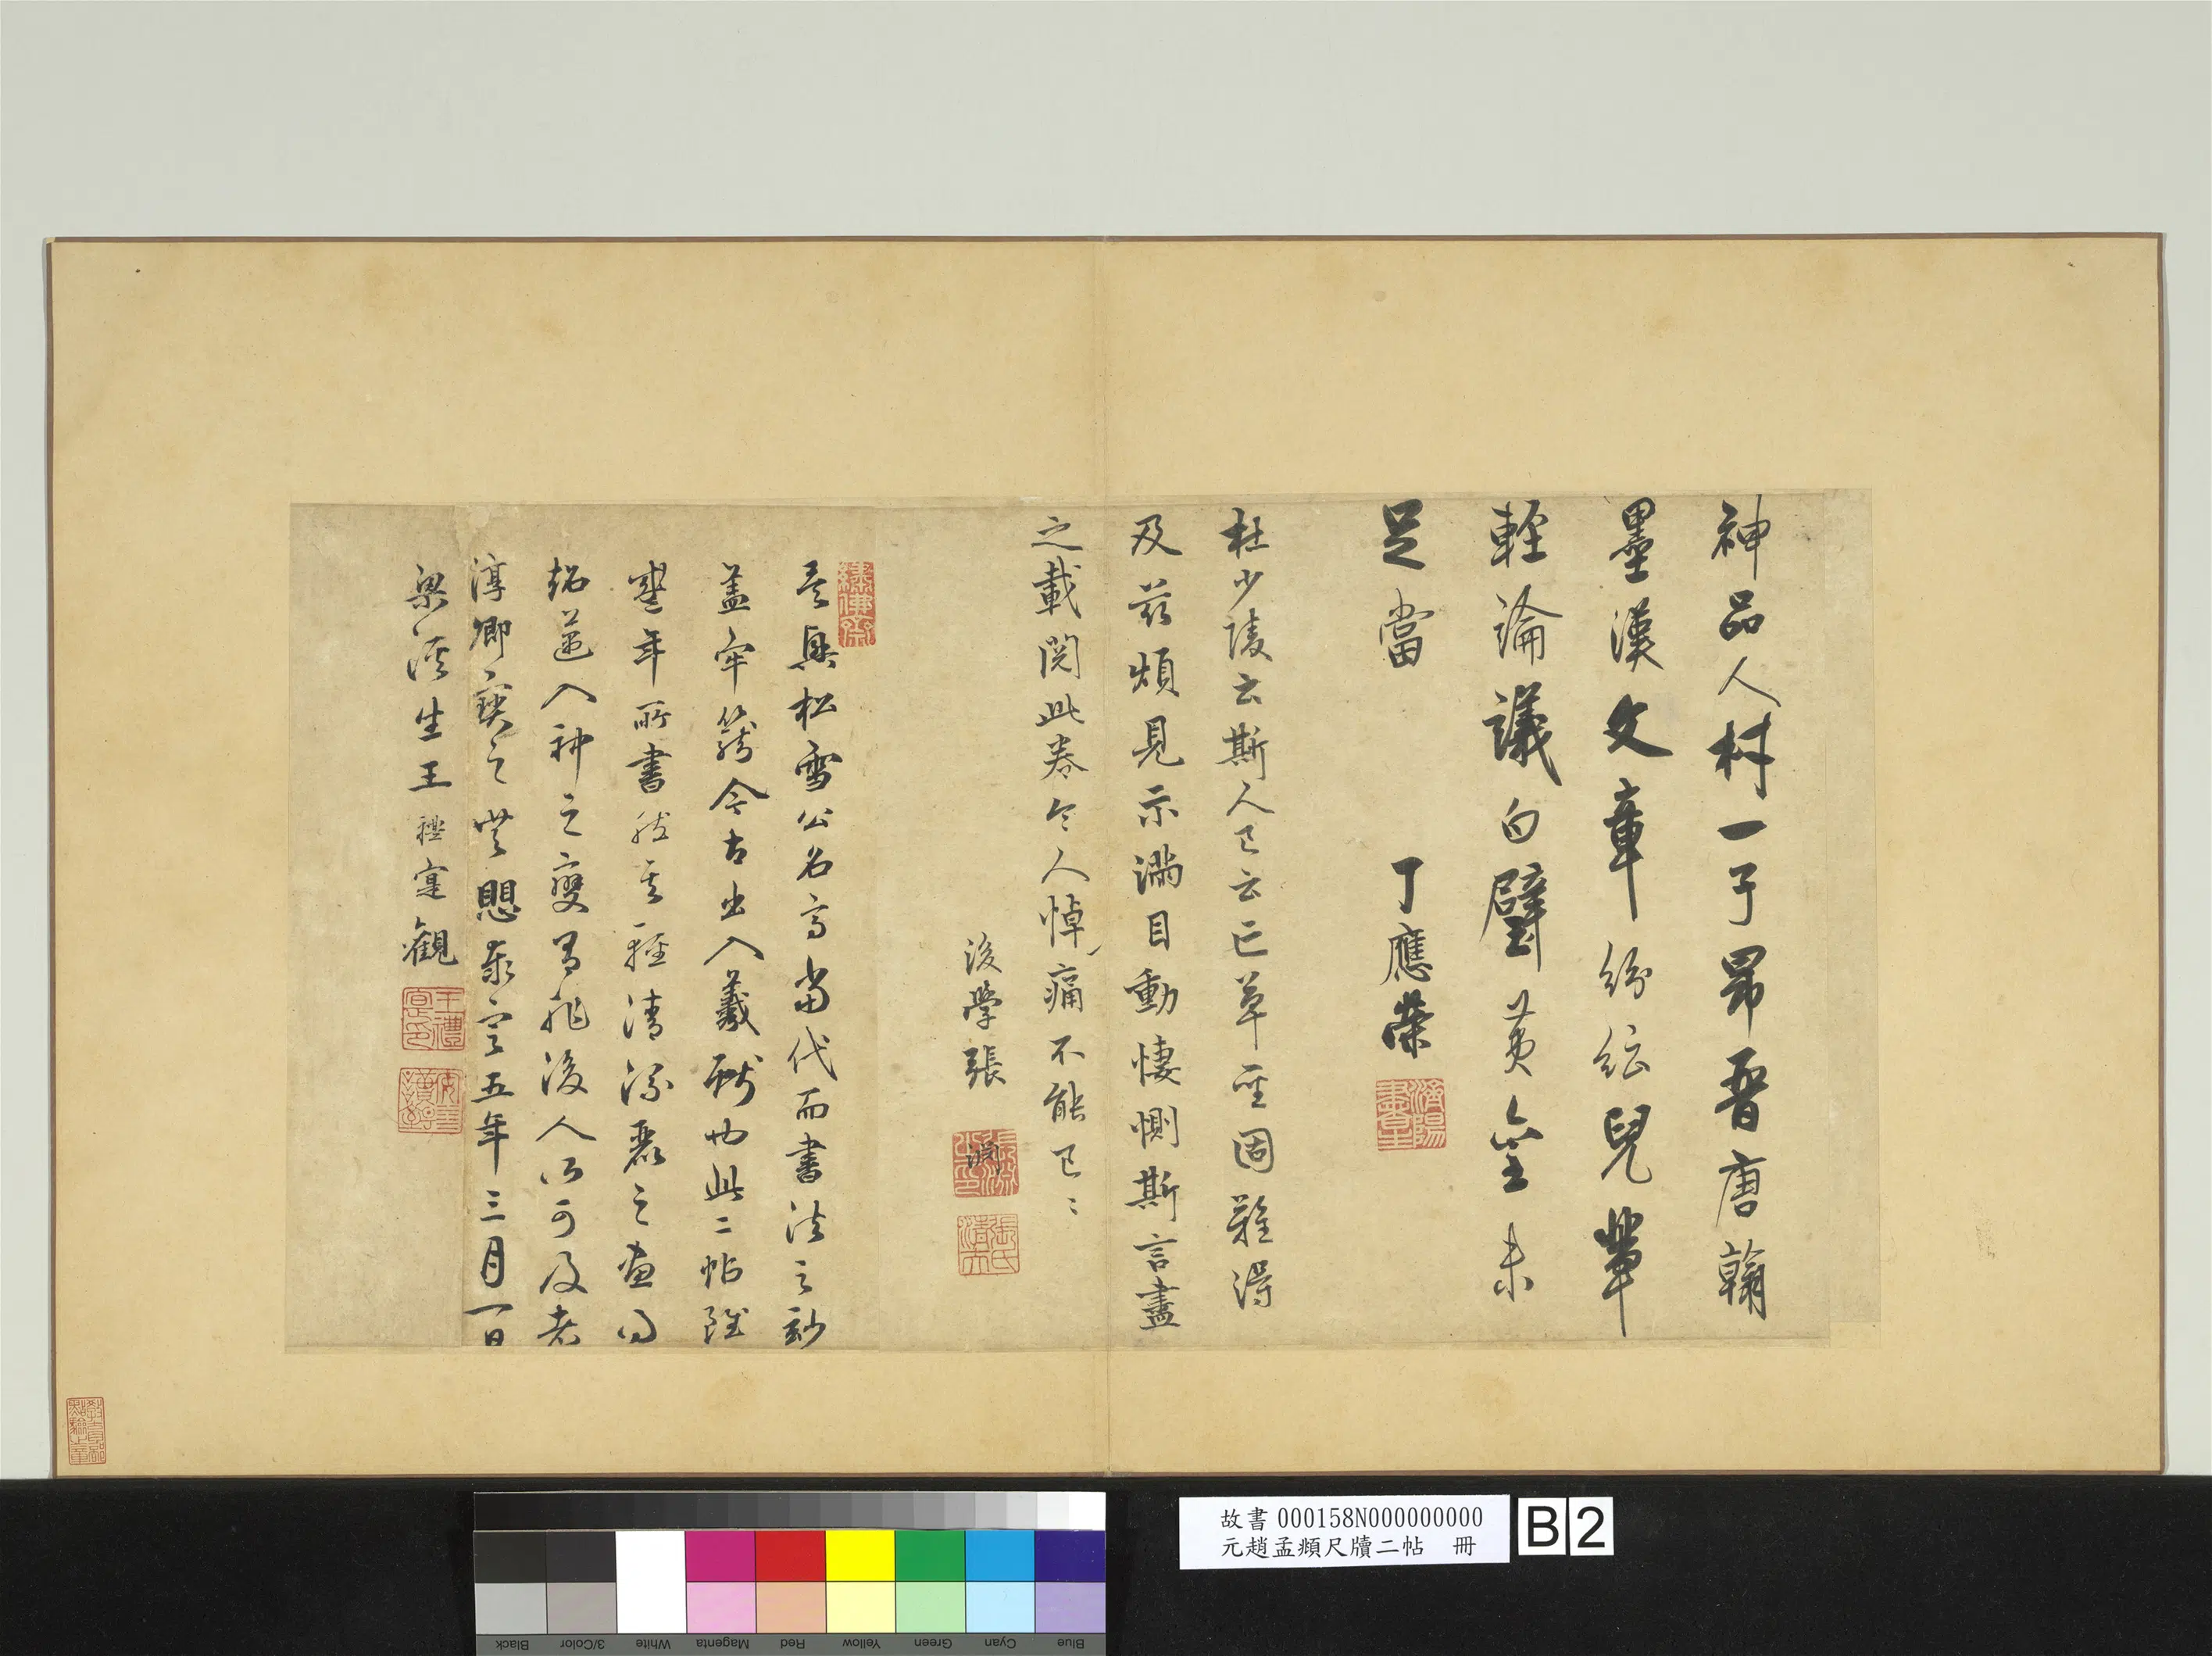 神品人材一子昂晉唐翰
墨漢文章紛紜兒輩
輕論議白璧黃金未
足當
丁應榮
濟陽圖書
杜少陵云斯人已云亡草聖固難得
及茲煩見示滿目動悽惻斯言盡
之載閱此卷令人悼痛不能已〻
後學張
淵
吳興松雪公名高當代而書法之妙
蓋牢籠今古出入羲獻也此二帖雖
蚤年所書然其輕清流麗之畫與
超逸入神之變有非後人所可及者
淳卿寶之哉 泰定五年三月一日
梁溪生王 寔觀
故書 000158N000000000
元趙孟頫尺牘二帖 冊
B 2
Black 3/Color White Magenta Red Yellow Green Cyan Blue